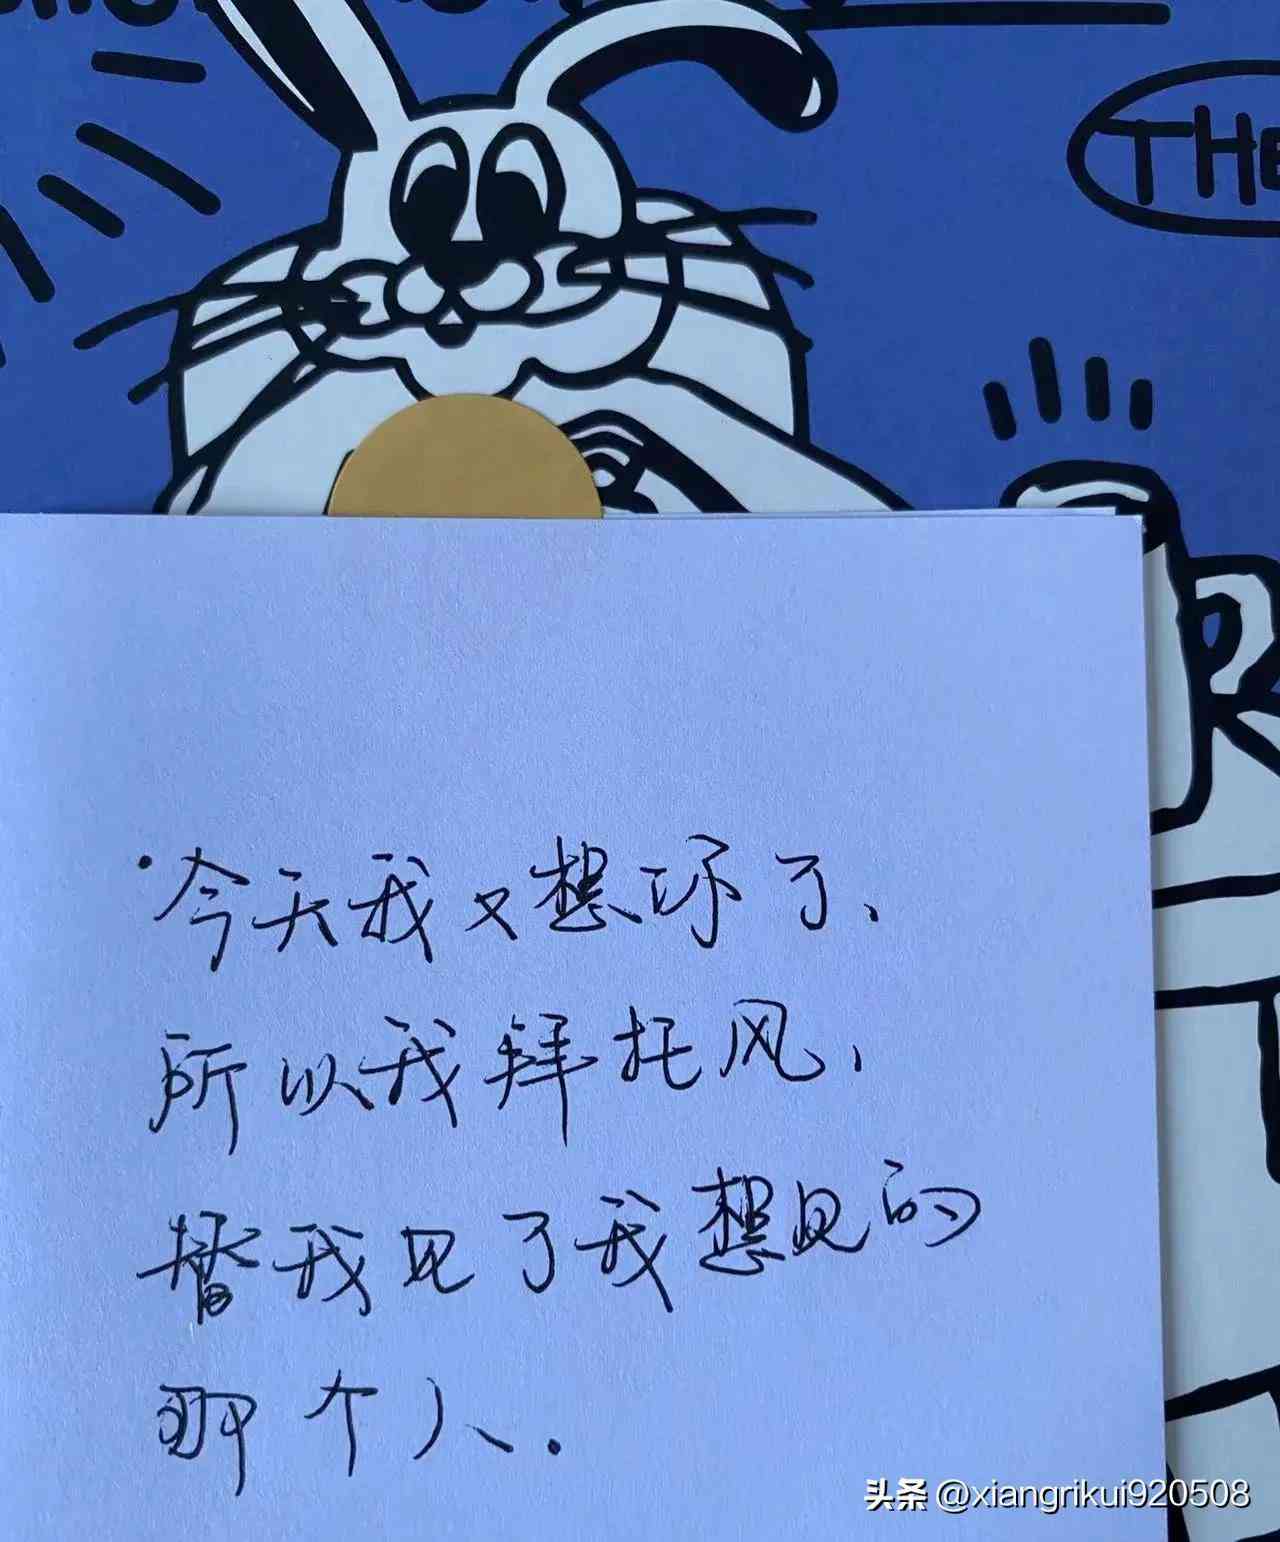 THE
今天我又想坏了、
所以我拜托风,
替我见了我想见的
那个人.
头条 @xiangrikui920508